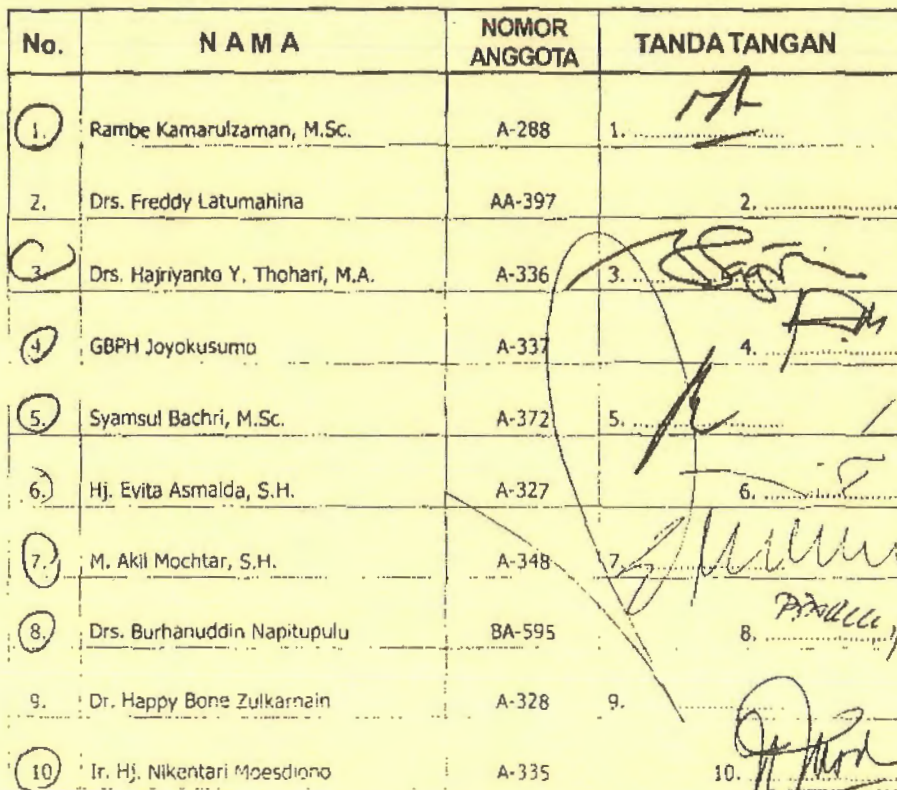 No. NAMA NOMOR ANGGOTA TANDA TANGAN
1. Rambe Kamarulzaman, M.Sc. A-288 1. ....................
2. Drs. Freddy Latumahina AA-397 2. ....................
3. Drs. Hajriyanto Y. Thohari, M.A. A-336 3. ....................
4. GBPH Joyokusumo A-337 4. ....................
5. Syamsul Bachri, M.Sc. A-372 5. ....................
6. Hj. Evita Asmalda, S.H. A-327 6. ....................
7. M. Akil Mochtar, S.H. A-348 7. ....................
8. Drs. Burhanuddin Napitupulu BA-595 8. ....................
9. Dr. Happy Bone Zulkarnain A-328 9. ....................
10 Ir. Hj. Nikentari Moesdiono A-335 10. ....................